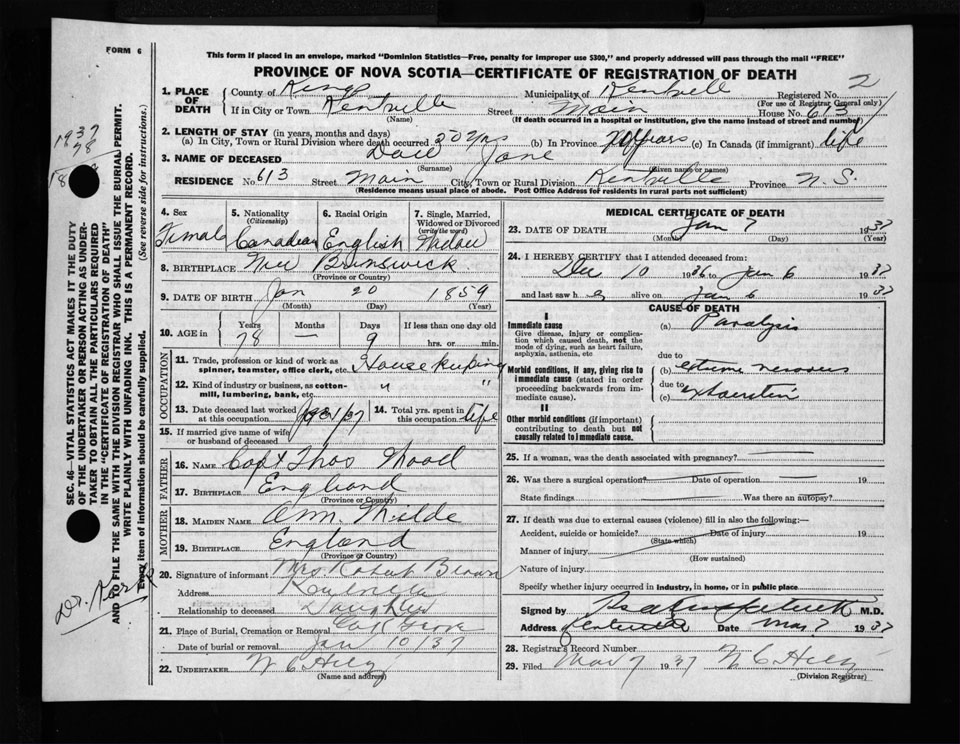 FORM 6
This form if placed in an envelope, marked "Dominion Statistics—Free, penalty for improper use $300," and properly addressed will pass through the mail "FREE"
PROVINCE OF NOVA SCOTIA—CERTIFICATE OF REGISTRATION OF DEATH
1. PLACE OF DEATH
County of Kings Municipality of Registered No. 2
(For use of Registrar General only)
If in City or Town Kentville Street Main House No. 613
(Name) (If death occurred in a hospital or institution, give the name instead of street and number)
2. LENGTH OF STAY (in years, months and days)
(a) In City, Town or Rural Division where death occurred (b) In Province (c) In Canada (if immigrant) life
3. NAME OF DECEASED Jane
(Surname) (Given name or names)
RESIDENCE No. 613 Street Main City, Town or Rural Division Kentville Province N. S.
(Residence means usual place of abode. Post Office Address for residents in rural parts not sufficient)
4. Sex 5. Nationality (Citizenship) 6. Racial Origin 7. Single, Married, Widowed or Divorced (write the word)
Female Canadian English
8. BIRTHPLACE New Brunswick
(Province or Country)
9. DATE OF BIRTH Jan 20 1859
(Month) (Day) (Year)
10. AGE in Years Months Days If less than one day
78 — 9 hrs. or min.
OCCUPATION
11. Trade, profession or kind of work as spinner, teamster, office clerk, etc. Housekeeping
12. Kind of industry or business, as cotton-mill, lumbering, bank, etc. " "
13. Date deceased last worked at this occupation 14. Total yrs. spent in this occupation life
15. If married give name of wife or husband of deceased
FATHER
16. NAME Capt Thos Wood
17. BIRTHPLACE England
(Province or Country)
MOTHER
18. MAIDEN NAME Ann
19. BIRTHPLACE England
(Province or Country)
20. Signature of informant Mrs. Robert Brown
Address Kentville
Relationship to deceased Daughter
21. Place of Burial, Cremation or Removal
Date of burial or removal Jan 10/37
22. UNDERTAKER W C
(Name and address)
MEDICAL CERTIFICATE OF DEATH
23. DATE OF DEATH Jan 7 1937
(Month) (Day) (Year)
24. I HEREBY CERTIFY that I attended deceased from:
Dec 10 1936 to Jan 6 1937
and last saw h alive on Jan 6 1937
CAUSE OF DEATH
I
Immediate cause (a) Paralysis
Give disease, injury or complication which caused death, not the mode of dying, such as heart failure, asphyxia, asthenia, etc
due to
Morbid conditions, if any, giving rise to immediate cause (stated in order proceeding backwards from immediate cause). (b) extreme nervous
due to
(c) exhaustion
II
Other morbid conditions (if important) contributing to death but not causally related to immediate cause.
25. If a woman, was the death associated with pregnancy?
26. Was there a surgical operation? Date of operation 19
State findings Was there an autopsy?
27. If death was due to external causes (violence) fill in also the following:—
Accident, suicide or homicide? Date of injury 19
(State which)
Manner of injury
(How sustained)
Nature of injury
Specify whether injury occurred in industry, in home, or in public place
Signed by M.D.
Address Kentville Date Mar 7 1937
28. Registrar's Record Number
29. Filed Mar 7 1937 W C
(Division Registrar)
SEC. 46—VITAL STATISTICS ACT MAKES IT THE DUTY
OF THE UNDERTAKER OR PERSON ACTING AS UNDER-
TAKER TO OBTAIN ALL THE PARTICULARS REQUIRED
IN THE "CERTIFICATE OF REGISTRATION OF DEATH"
AND TO FILE THE SAME WITH THE DIVISION REGISTRAR WHO SHALL ISSUE THE BURIAL PERMIT.
WRITE PLAINLY WITH UNFADING INK. THIS IS A PERMANENT RECORD.
Every item of information should be carefully supplied. (See reverse side for instructions.)
1937
78